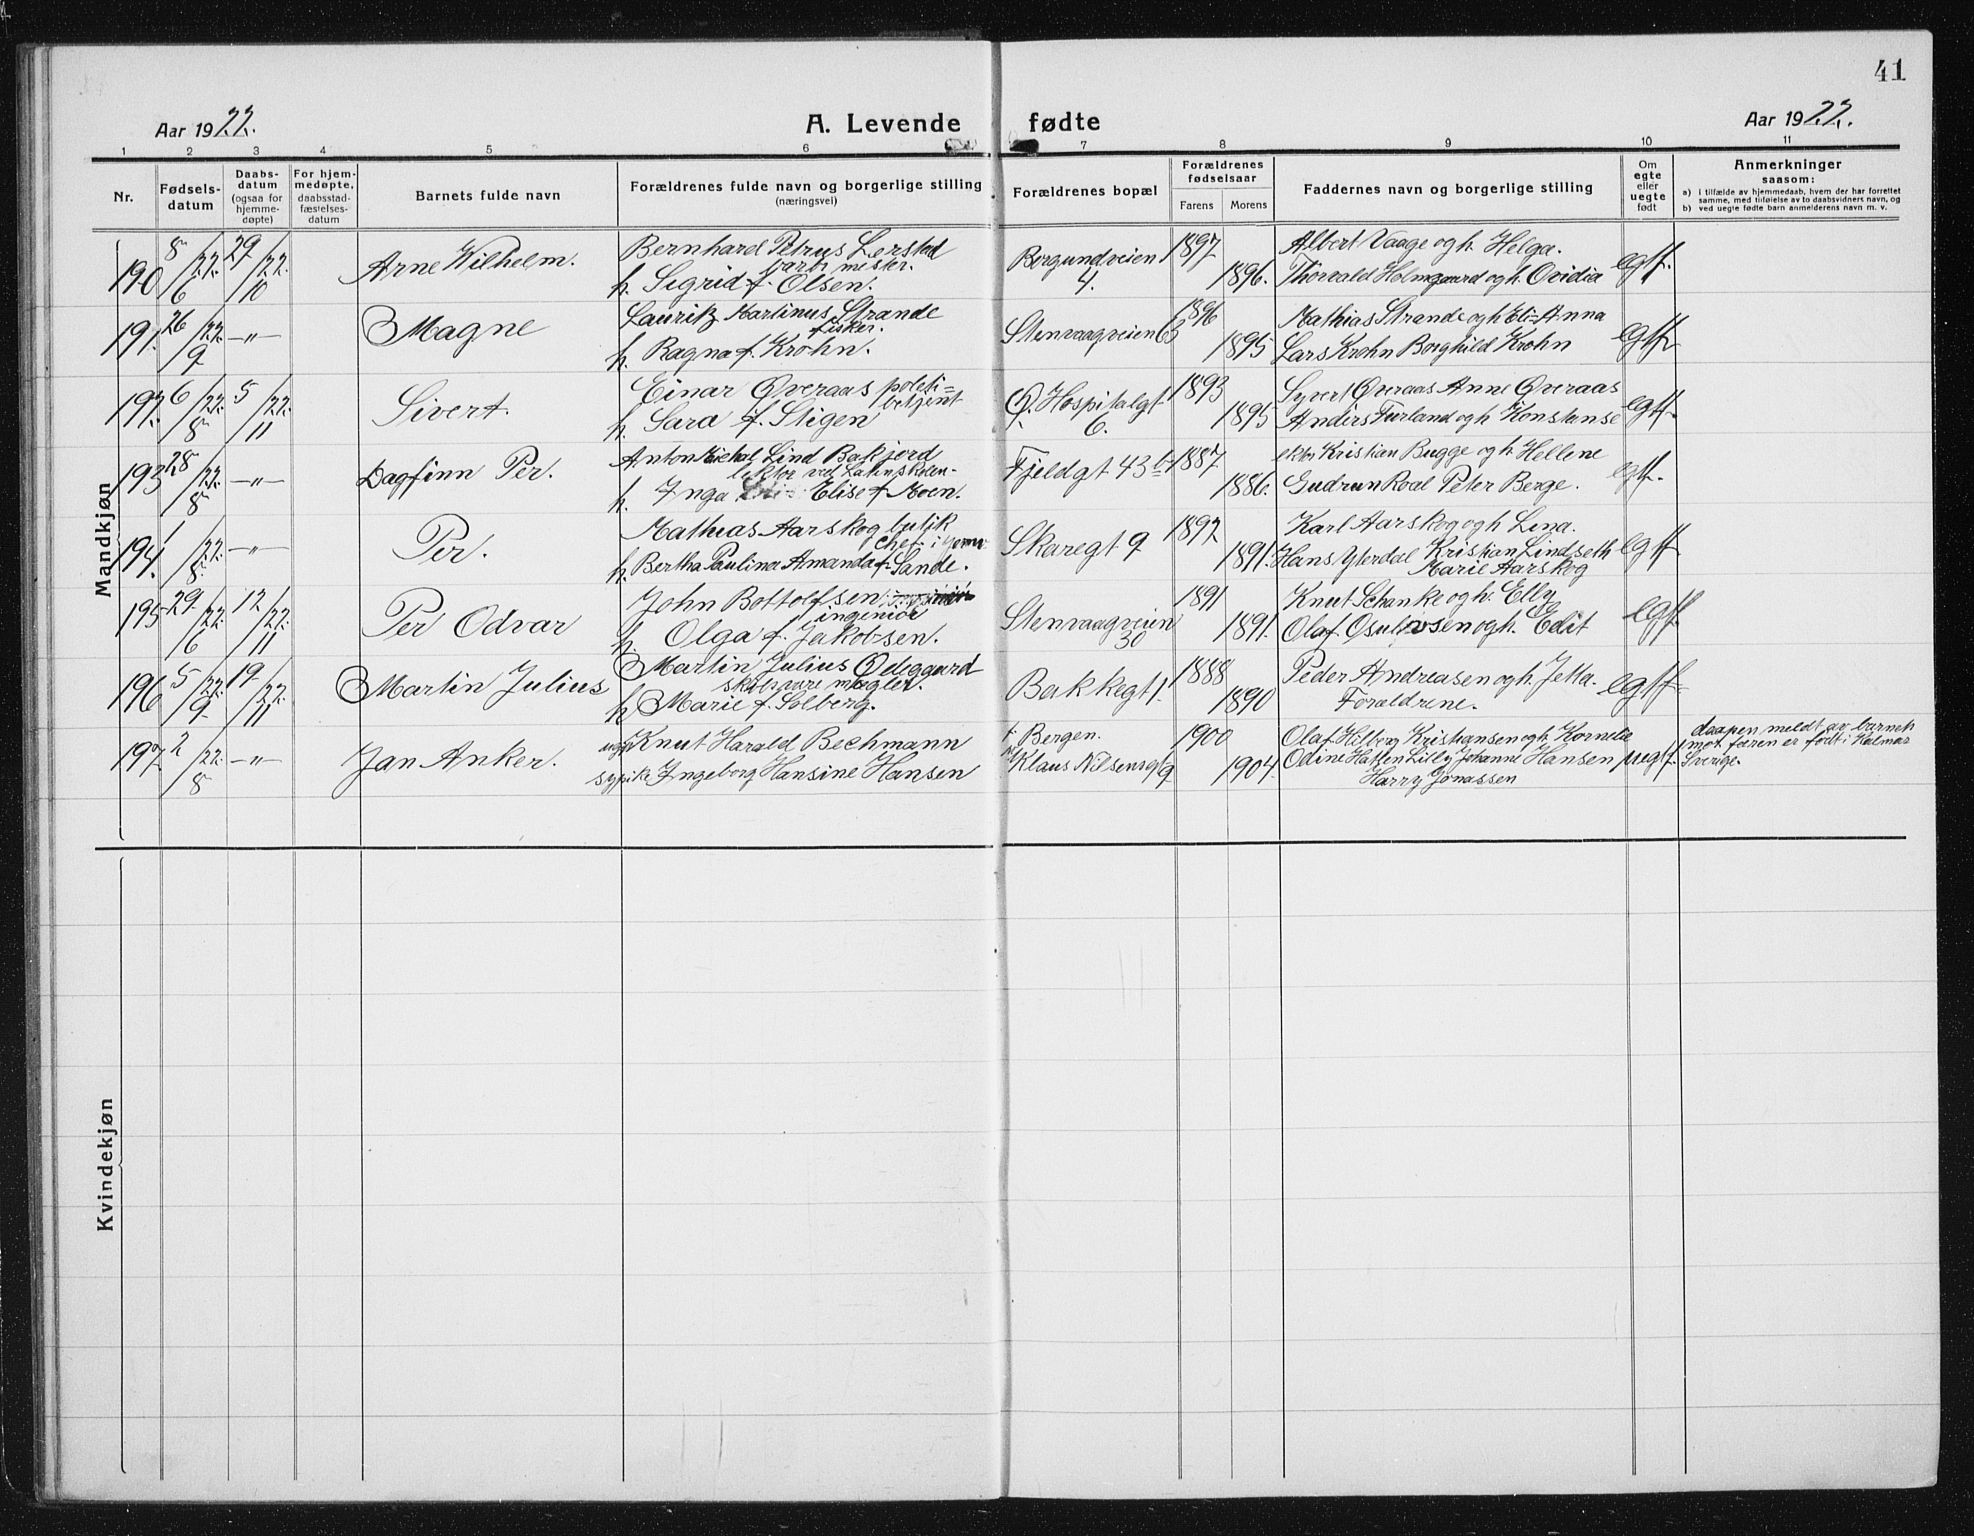 41
Aar 1922.
A. Levende fødte
Aar 1922.
1 2 3 4 5 6 7 8 9 10 11
Nr.
Fødsels-
datum
Daabs-
datum
(ogsaa for
hjemme-
døpte)
For hjem-
medøpte,
daabsstad-
fæstelses-
datum
Barnets fulde navn
Forældrenes fulde navn og borgerlige stilling
(næringsvei)
Forældrenes bopæl
Forældrenes
fødselsaar
Farens Morens
Faddernes navn og borgerlige stilling
Om
egte
eller
uegte
født
Anmerkninger
saasom:
a) i tilfælde av hjemmedaab, hvem der har forrettet
samme, med tilføielse av to daabsvidners navn, og
b) ved uegte fødte barn anmelderens navn m. v.
Mandkjøn
190 8/6 22. 29/10 22. Arne Wilhelm.
Bernhard Petrus Lerstad
barbermester.
h. Sigrid f. Olsen.
Borgundveien
4.
1897 1896.
Albert Vaage og h. Helga.
Thorvald Holmgaard og h. Ovidia
egtf.
191. 26/9 22. -"- Magne
Lauritz Martinus Strande
fisker.
h. Ragna f. Krohn.
Stenvaagveien 63
1896 1895
Mathias Strande og h Eli-Anna
Lars Krohn Borghild Krohn
egtf
192. 6/8 22. 5/11 22. Sivert.
Einar Øveraas politi=
betjent
h. Sara f. Stigen
Ø. Hospitalgt
6.
1893 1895
Syvert Øveraas Anne Øveraas
Anders Furland og h Konstanse
egtf.
193 28/8 22. -"- Dagfinn Per.
Anton Michal Lind Bakjord
lektor ved Latinskolen-
h. Inga Elise f Moen.
Fjeldgt 43 b
1887 1886.
Kristian Bugge og h Hellene
Gudrun Roal Peter Berge.
egtf.
194. 1/8 22. -"- Per.
Mathias Aarskog butik
chef i
h. Bertha Paulina Amanda f. Sande.
Skaregt 9
1892 1891.
Karl Aarskog og h Lina.
Hans Yterdal Kristian Lindseth
Marie Aarskog
egtf
195 29/6 22. 12/11 22. Per Odvar
John Bottolfsen
ingeniør
h. Olga f. Jakobsen.
Stenvaagveien
30
1891 1891.
Knut Schanke og h. Elly
Olaf Osulvsen og h. Edit
egtf.
196 5/9 22. 19/11 22. Martin Julius
Martin Julius Ødegaard
skibsvaremægler.
h Marie f. Solberg.
Bakkegt 1.
1888 1890
Peder Andreasen og h. Jetta.
Forældrene.
egtf
197 2/8 22. -"- Jan Anker.
ungk Knut Harald Bechmann
sypike Ingeborg Hansine Hansen
i Bergen.
Klaus Nilsensgt 9
1900 1904.
Olaf Hilberg Kristiansen og h Kornelia
Odine Hatlen Lilly Johanne Hansen
Harry Jonassen
uegtf.
daapen meldt av barnets
mor. faren er født i Kalmar
Sverige.
Kvindekjøn